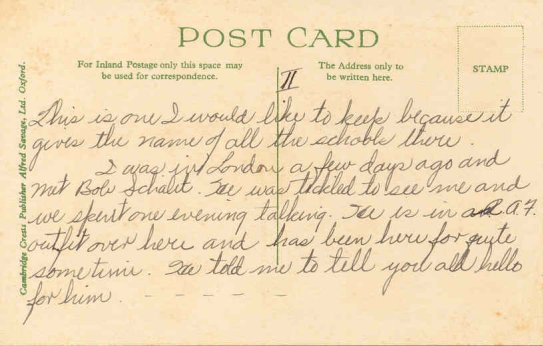 POST CARD
For Inland Postage only this space may
be used for correspondence.
The Address only to
be written here.
STAMP
II
This is one I would like to keep because it
gives the name of all the schools there.
I was in London a few days ago and
met Bob Schalit. He was tickled to see me and
we spent one evening talking. He is in A.F.
outfit over here and has been here for quite
sometime. He told me to tell you all hello
for him.
Cambridge Crests Publisher Alfred Savage, Ltd. Oxford.